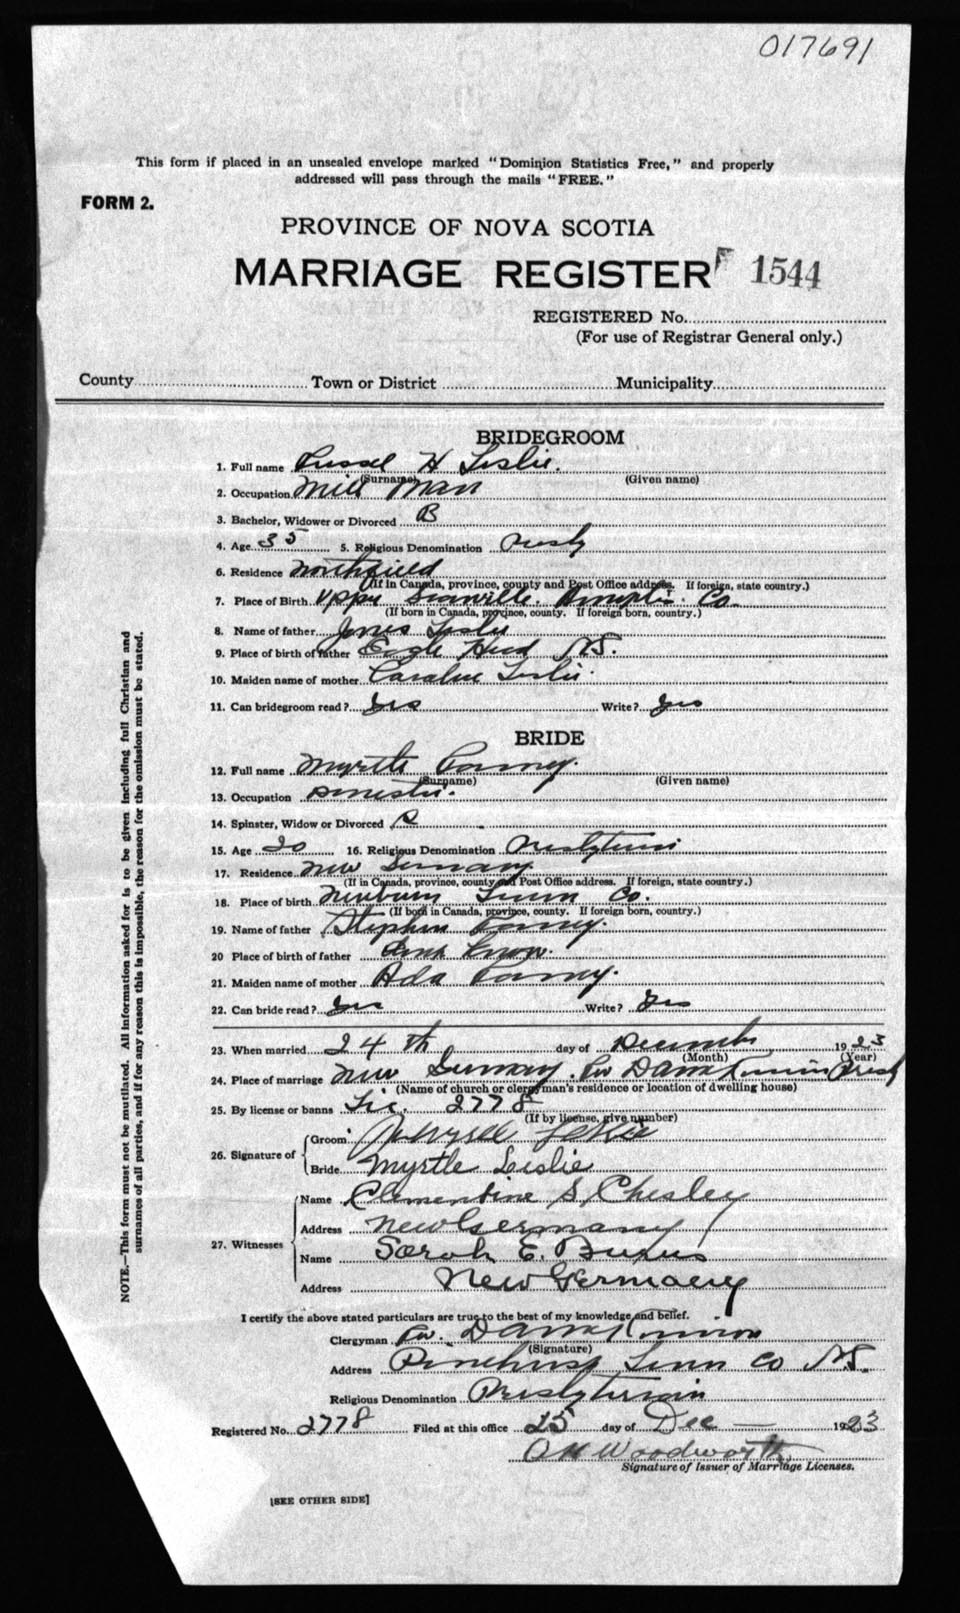 017691
This form if placed in an unsealed envelope marked "Dominion Statistics Free," and properly
addressed will pass through the mails "FREE."
FORM 2.
PROVINCE OF NOVA SCOTIA
MARRIAGE REGISTER 1544
REGISTERED No.
(For use of Registrar General only.)
County Town or District Municipality
BRIDEGROOM
1. Full name Russel H Leslie.
(Surname) (Given name)
2. Occupation Mill Man
3. Bachelor, Widower or Divorced B
4. Age 35 5. Religious Denomination Presby
6. Residence Northfield
(If in Canada, province, county and Post Office address. If foreign, state country.)
7. Place of Birth Upper Co.
(If born in Canada, province, county. If foreign born, country.)
8. Name of father Leslie
9. Place of birth of father Eagle Head NS.
10. Maiden name of mother Caroline Leslie.
11. Can bridegroom read? Yes Write? Yes
BRIDE
12. Full name Myrtle
(Surname) (Given name)
13. Occupation
14. Spinster, Widow or Divorced S
15. Age 20 16. Religious Denomination Presbyterian
17. Residence New Germany
(If in Canada, province, county and Post Office address. If foreign, state country.)
18. Place of birth Newburn Lunn Co.
(If born in Canada, province, county. If foreign born, country.)
19. Name of father Stephen
20 Place of birth of father know.
21. Maiden name of mother Ada
22. Can bride read? Yes Write? Yes
23. When married 24th day of December 1923
(Month) (Year)
24. Place of marriage New Germany. Rev Presby
(Name of church or clergyman's residence or location of dwelling house)
25. By license or banns Lic. 2778
(If by license, give number)
26. Signature of
Groom Leslie
Bride Myrtle Leslie
27. Witnesses
Name Clementine S, Chesley
Address New Germany
Name Sarah E.
Address New Germany
I certify the above stated particulars are true to the best of my knowledge and belief.
Clergyman Rev.
(Signature)
Address Pinehurst Lunn Co NS.
Religious Denomination Presbyterian
Registered No. 2778 Filed at this office 25 day of Dec 1923
Woodworth
Signature of Issuer of Marriage Licenses.
[SEE OTHER SIDE]
NOTE.—This form must not be mutilated. All information asked for is to be given including full Christian and
surnames of all parties, and if for any reason this is impossible, the reason for the omission must be stated.